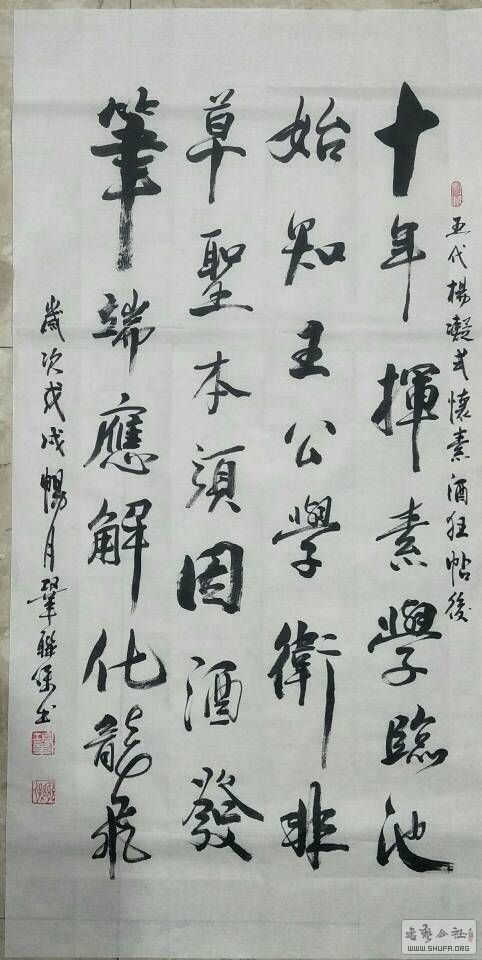 五代楊凝式懷素酒狂帖後
十年揮素學臨池
始知主公學衛非
草聖本須因酒發
筆端應解化龍飛
歲次戊戌暢月鞏聯保书
书艺公社
WWW.SHUFA.ORG